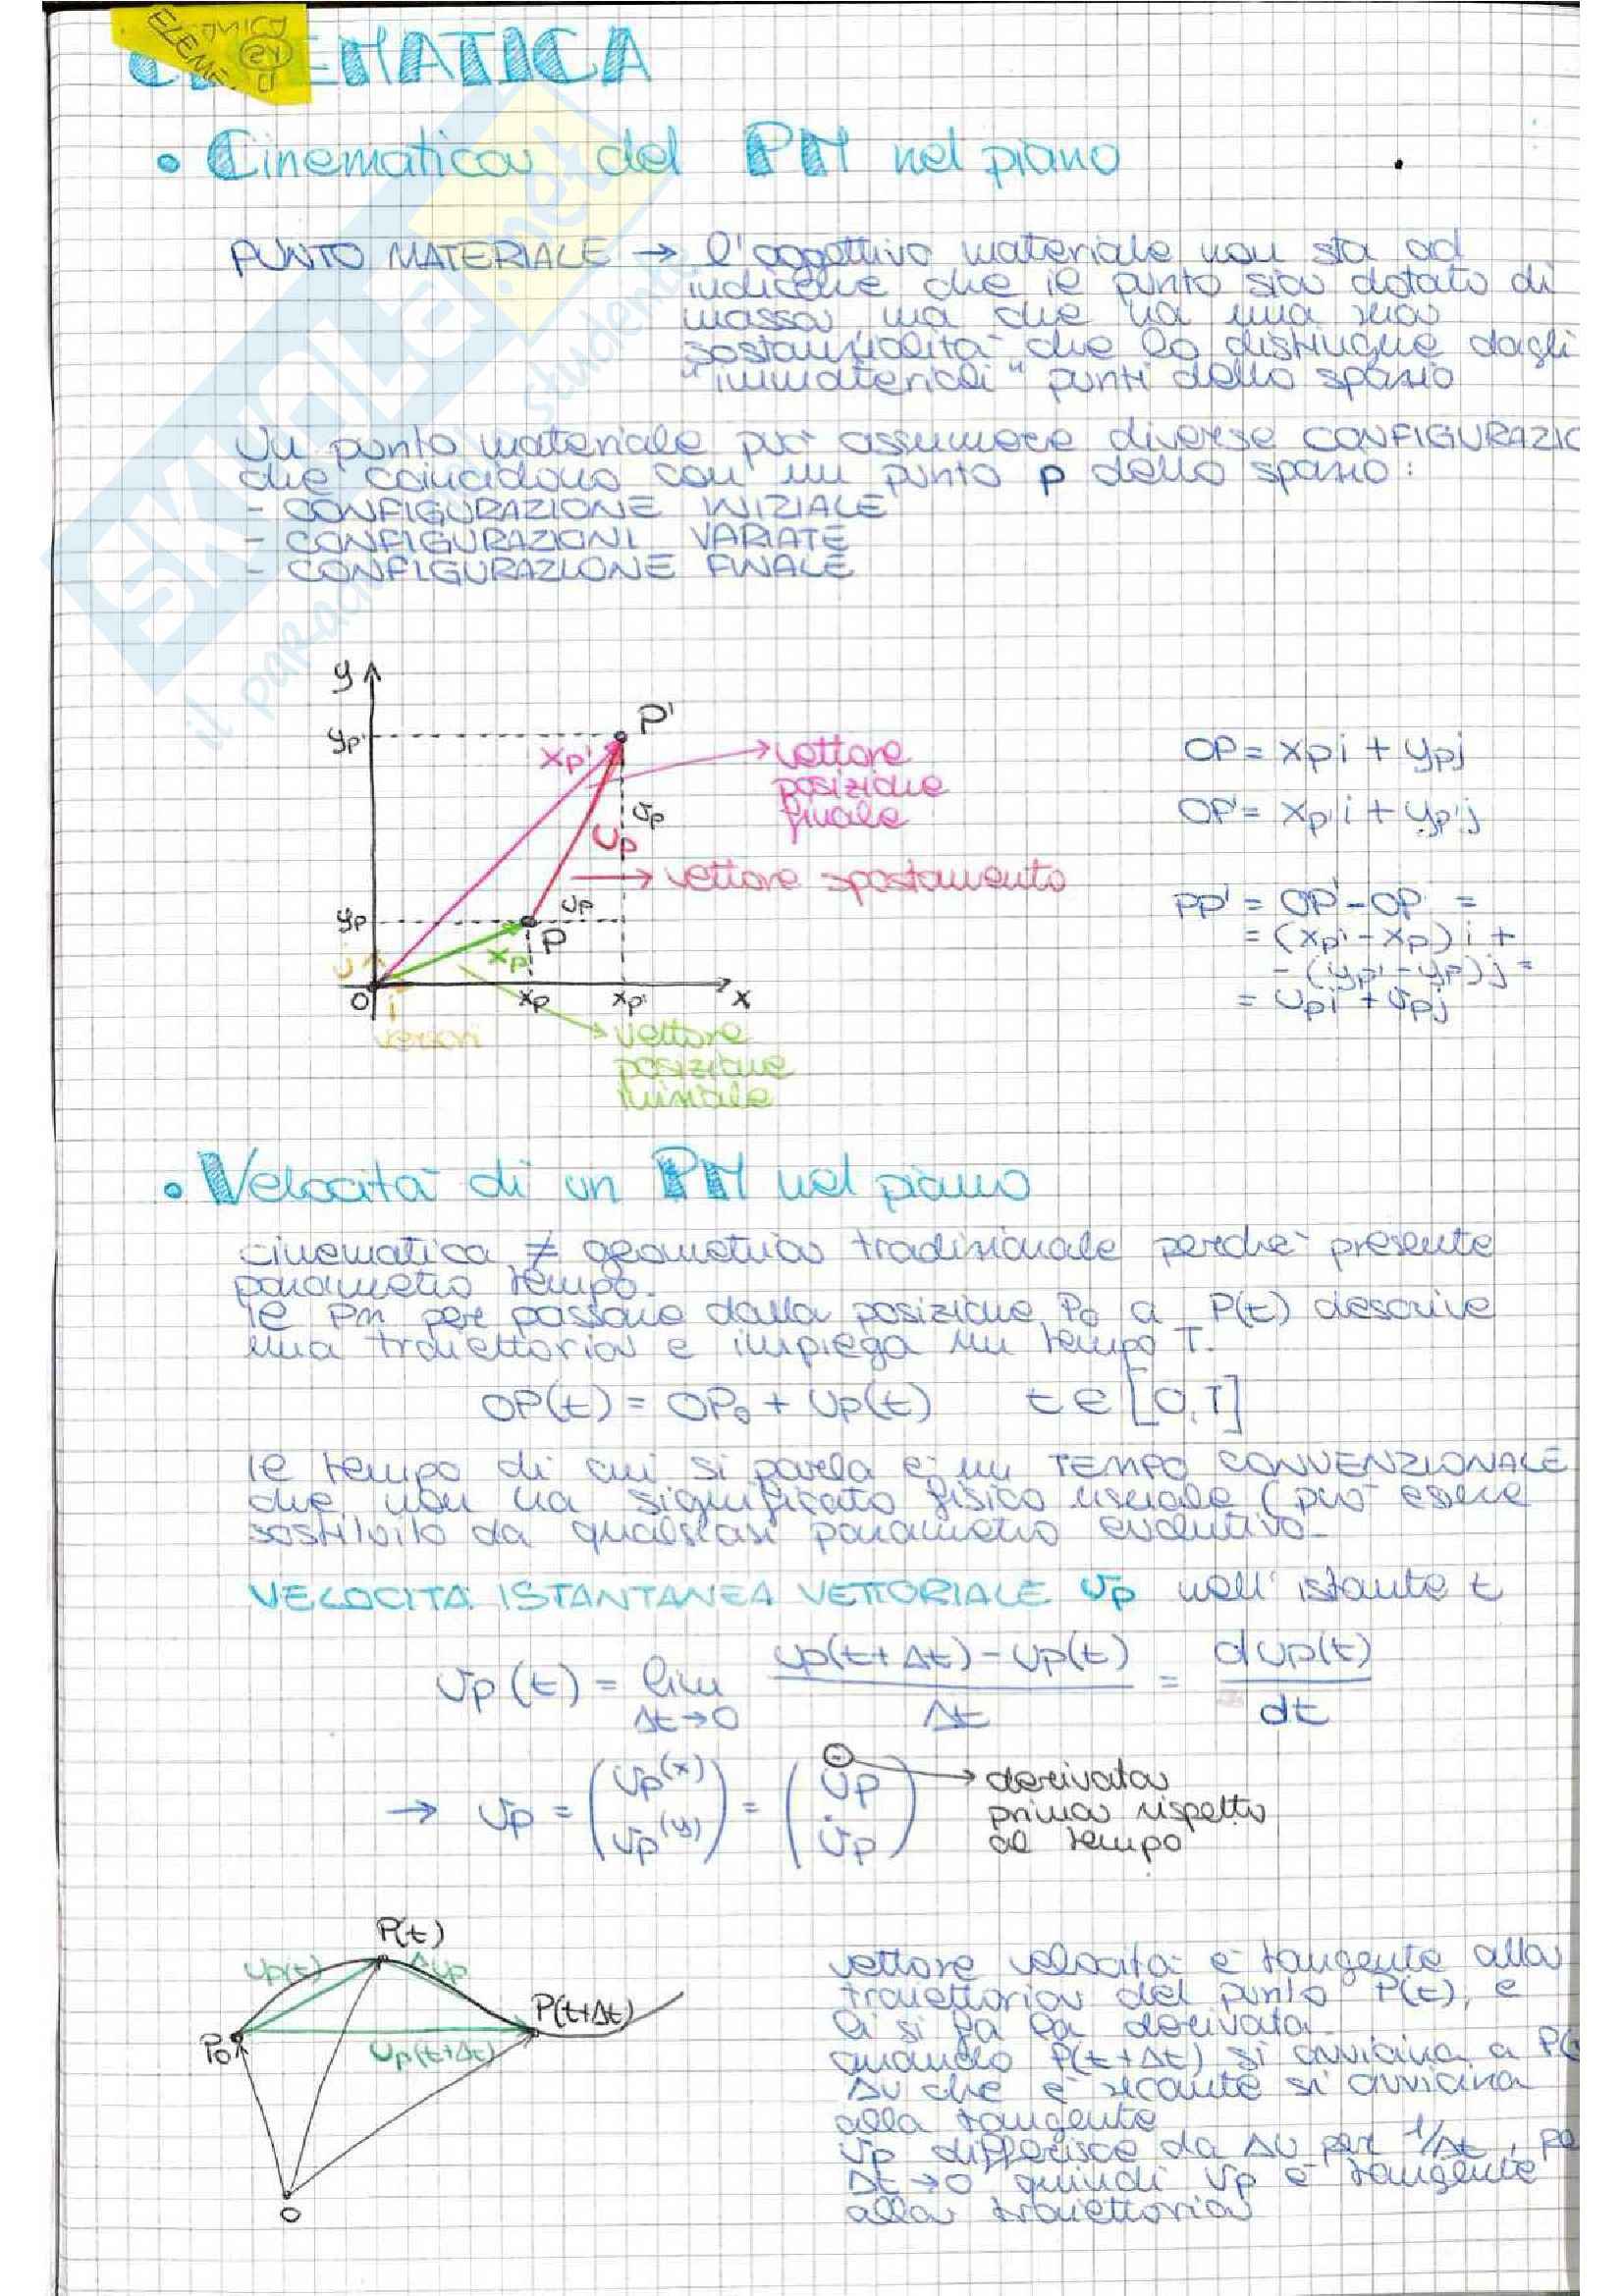 CINEMATICA
• Cinematica del PM nel piano
PUNTO MATERIALE → l'aggettivo materiale non sta ad
indicare che il punto sia dotato di
massa, ma che ha una sua
sostanzialità che lo distingue dagli
"immateriali" punti dello spazio
Un punto materiale può assumere diverse CONFIGURAZIO
che coincidono con un punto P dello spazio:
- CONFIGURAZIONE INIZIALE
- CONFIGURAZIONI VARIATE
- CONFIGURAZIONE FINALE
y
yp'
P'
xp'
vettore
posizione
finale
vp
up
→ vettore spostamento
yp
up
P
xp
j
O
i
xp
xp'
x
versori
vettore
posizione
iniziale
OP = xp i + yp j
OP' = xp' i + yp' j
PP' = OP' - OP =
= (xp' - xp) i +
- (yp' - yp) j =
= up i + vp j
• Velocità di un PM nel piano
cinematica ≠ geometria tradizionale perché presente
parametro tempo.
Il PM per passare dalla posizione P0 a P(t) descrive
una traiettoria e impiega un tempo T.
OP(t) = OP0 + up(t) t ∈ [0,T]
Il tempo di cui si parla è un TEMPO CONVENZIONALE
che non ha significato fisico usuale (può essere
sostituito da qualsiasi parametro evolutivo.
VELOCITÀ ISTANTANEA VETTORIALE vp nell'istante t
vp(t) = lim Δt→0 up(t+Δt) - up(t) / Δt = d up(t) / dt
→ vp = (vp(x) vp(y)) = (u̇p v̇p) → derivata
prima rispetto
al tempo
P(t)
up(t)
Δup
P(t+Δt)
P0
up(t+Δt)
O
vettore velocità è tangente alla
traiettoria del punto P(t), e
lì si fa la derivata
quando P(t+Δt) si avvicina a P(
Δu che è secante si avvicina
alla tangente
vp differisce da Δu per 1/Δt, pe
Δt→0 quindi vp è tangente
alla traiettoria
SKUOLA.net
il parad
student